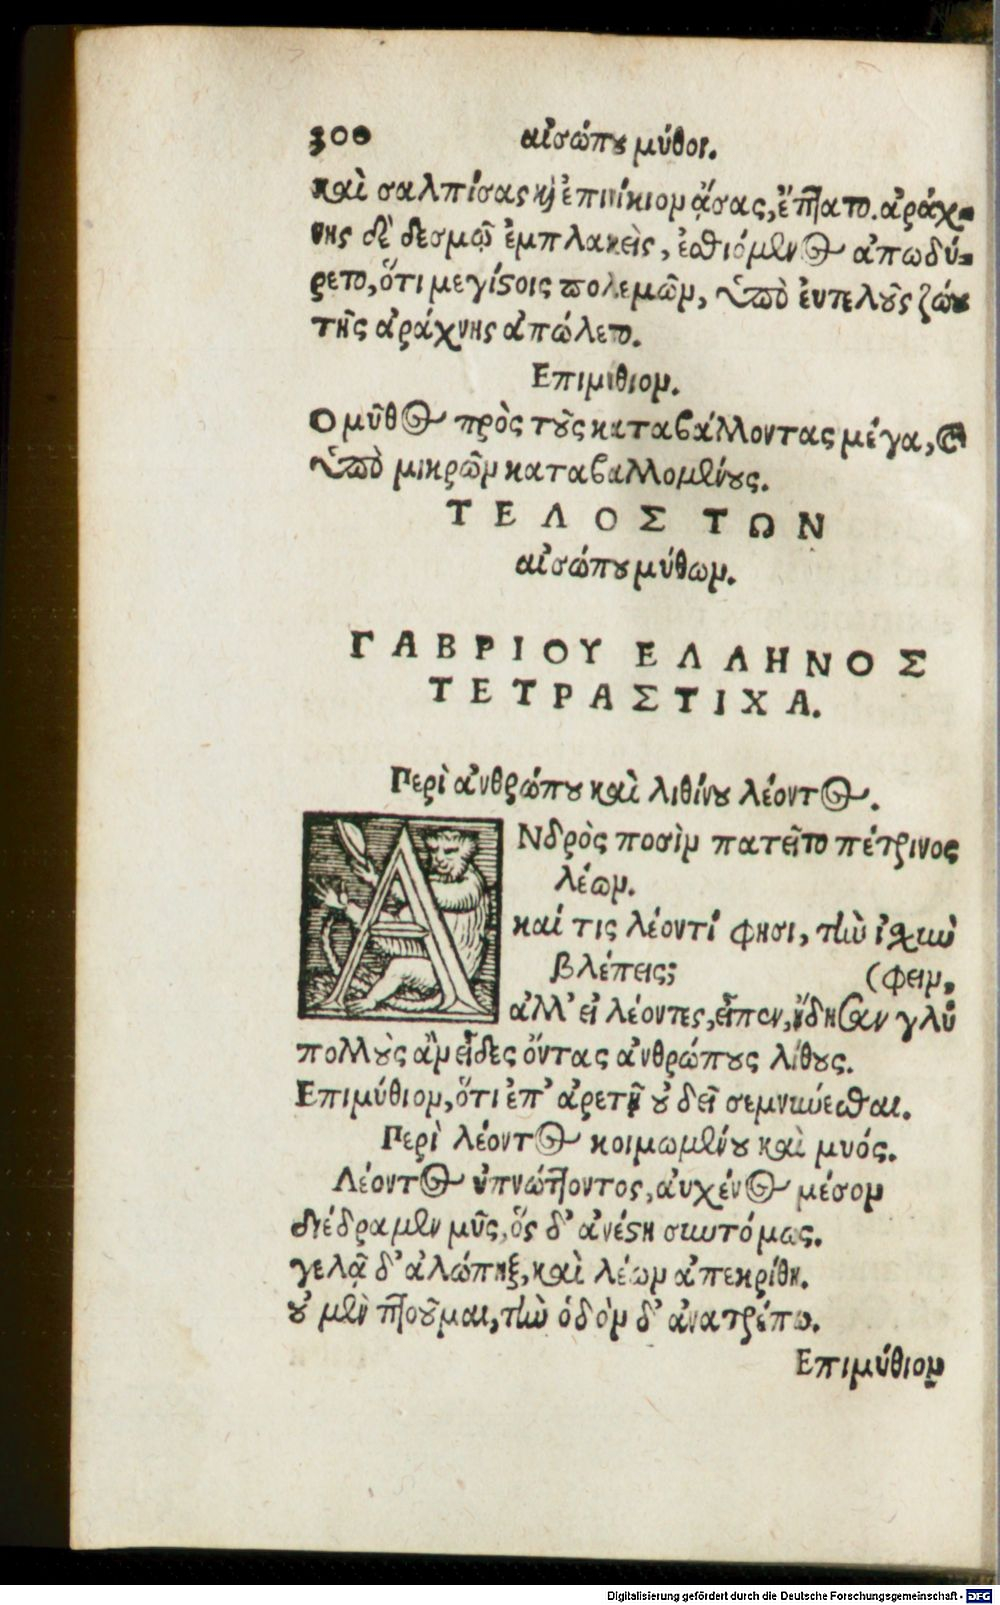 300 αἰσώπου μύθοι.
καὶ σαλπίσας καὶ ἐπινίκιον ᾄσας, ἔπτατο. ἀράχ-
νης δὲ δεσμῷ ἐμπλακεὶς, ἐσθιόμενος ἀπωδύ-
ρετο, ὅτι μεγίστοις πολεμῶν, ὑπὸ ἐυτελοῦς ζώου
τῆς ἀράχνης ἀπώλετο.
Επιμιθιον.
Ο μῦθος πρὸς τοὺς καταβάλλοντας μέγα, καὶ
ὑπὸ μικρῶν καταβαλλομένους.
ΤΕΛΟΣ ΤΩΝ
αἰσώπου μύθων.
ΓΑΒΡΙΟΥ ΕΛΛΗΝΟΣ
ΤΕΤΡΑΣΤΙΧΑ.
Περὶ ἀνθρώπου καὶ λιθίνου λέοντος.
ΑΝδρὸς ποσὶν πατεῖτο πέτρινος
λέων.
καί τις λέοντί φησι, τὴν ἰσχὺν
βλέπεις; (φειν,
ἀλλ' εἰ λέοντες, εἶπεν, ᾔδησαν γλύ
πολλοὺς ἂν εἶδες ὄντας ἀνθρώπους λίθους.
Επιμύθιον, ὅτι ἐπ' ἀρετῇ οὐ δεῖ σεμνύεσθαι.
Περὶ λέοντος κοιμωμένου καὶ μυός.
Λέοντος ὑπνώττοντος, ἀυχένος μέσον
διέδραμεν μῦς, ὅς δ' ἀνέστη συντόμως.
γελᾷ δ' ἀλώπηξ, καὶ λέων ἀπεκρίθη.
οὐ μὲν πτοοῦμαι, τὴν ὁδὸν δ' ἀνατρέπω.
Επιμύθιον
Digitalisierung gefördert durch die Deutsche Forschungsgemeinschaft - DFG